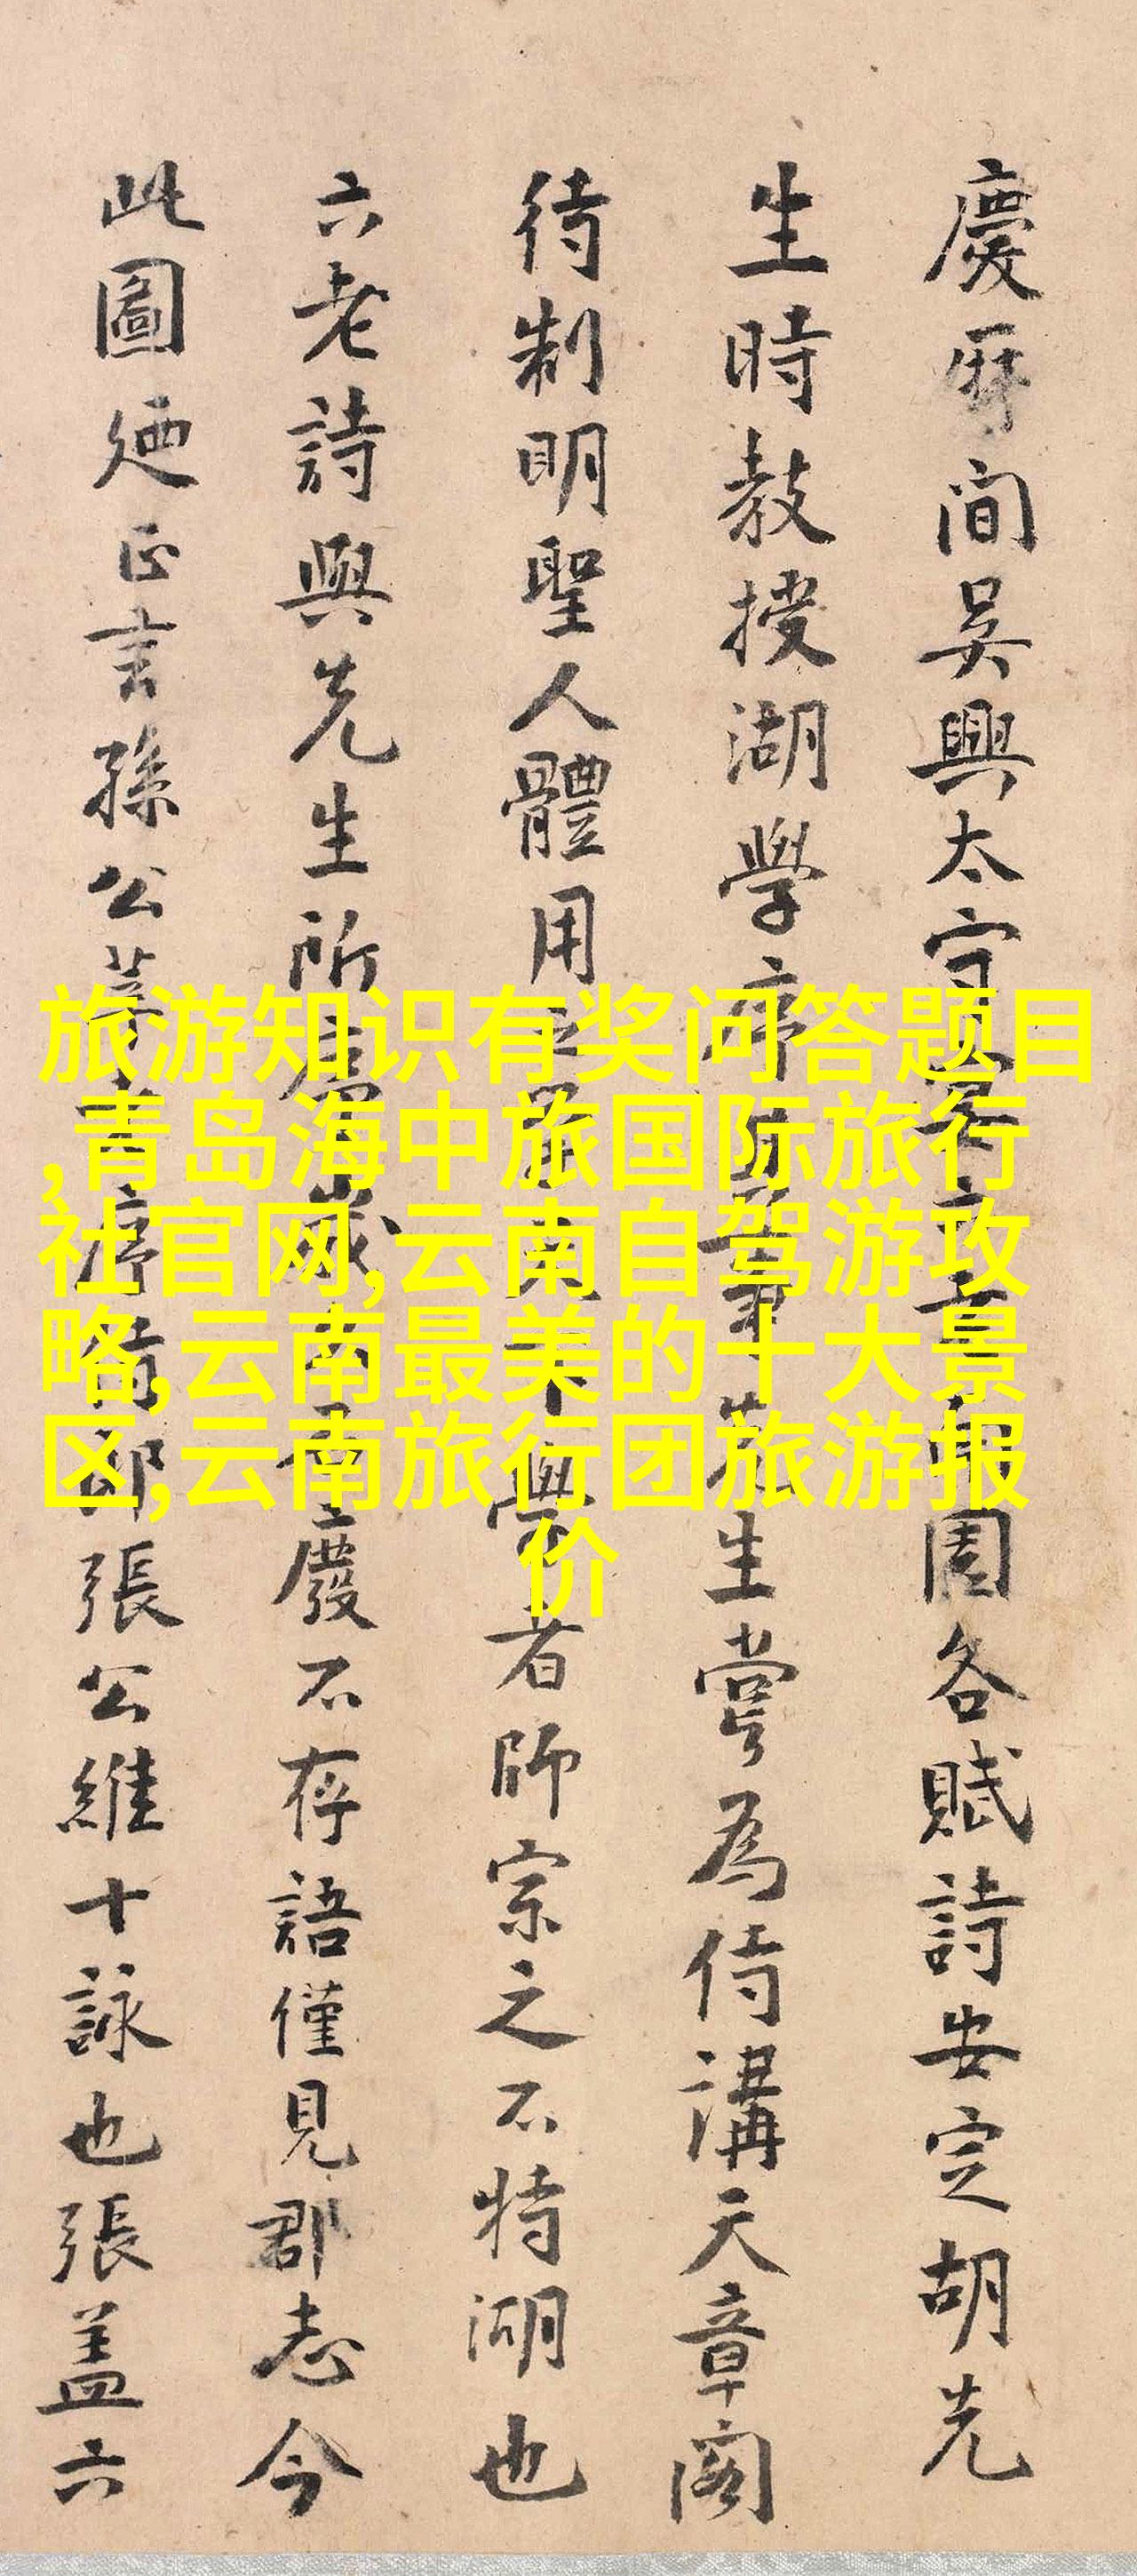 慶曆間吳興太守馬 六 於 園各賦詩安定胡先
生時教授湖學序 其事 先生嘗為侍講天章閣
待制明聖人體用之 東南學者師宗之不特湖也
六老詩與先生所序 歲 南 廢不存語僅見郡志今
此圖廼正言孫公莘老序 侍郎張公維十詠也張蓋六
旅游知识有奖问答题目
,青岛海中旅国际旅行
社官网,云南自驾游攻
略,云南最美的十大景
区,云南旅行团旅游报
价